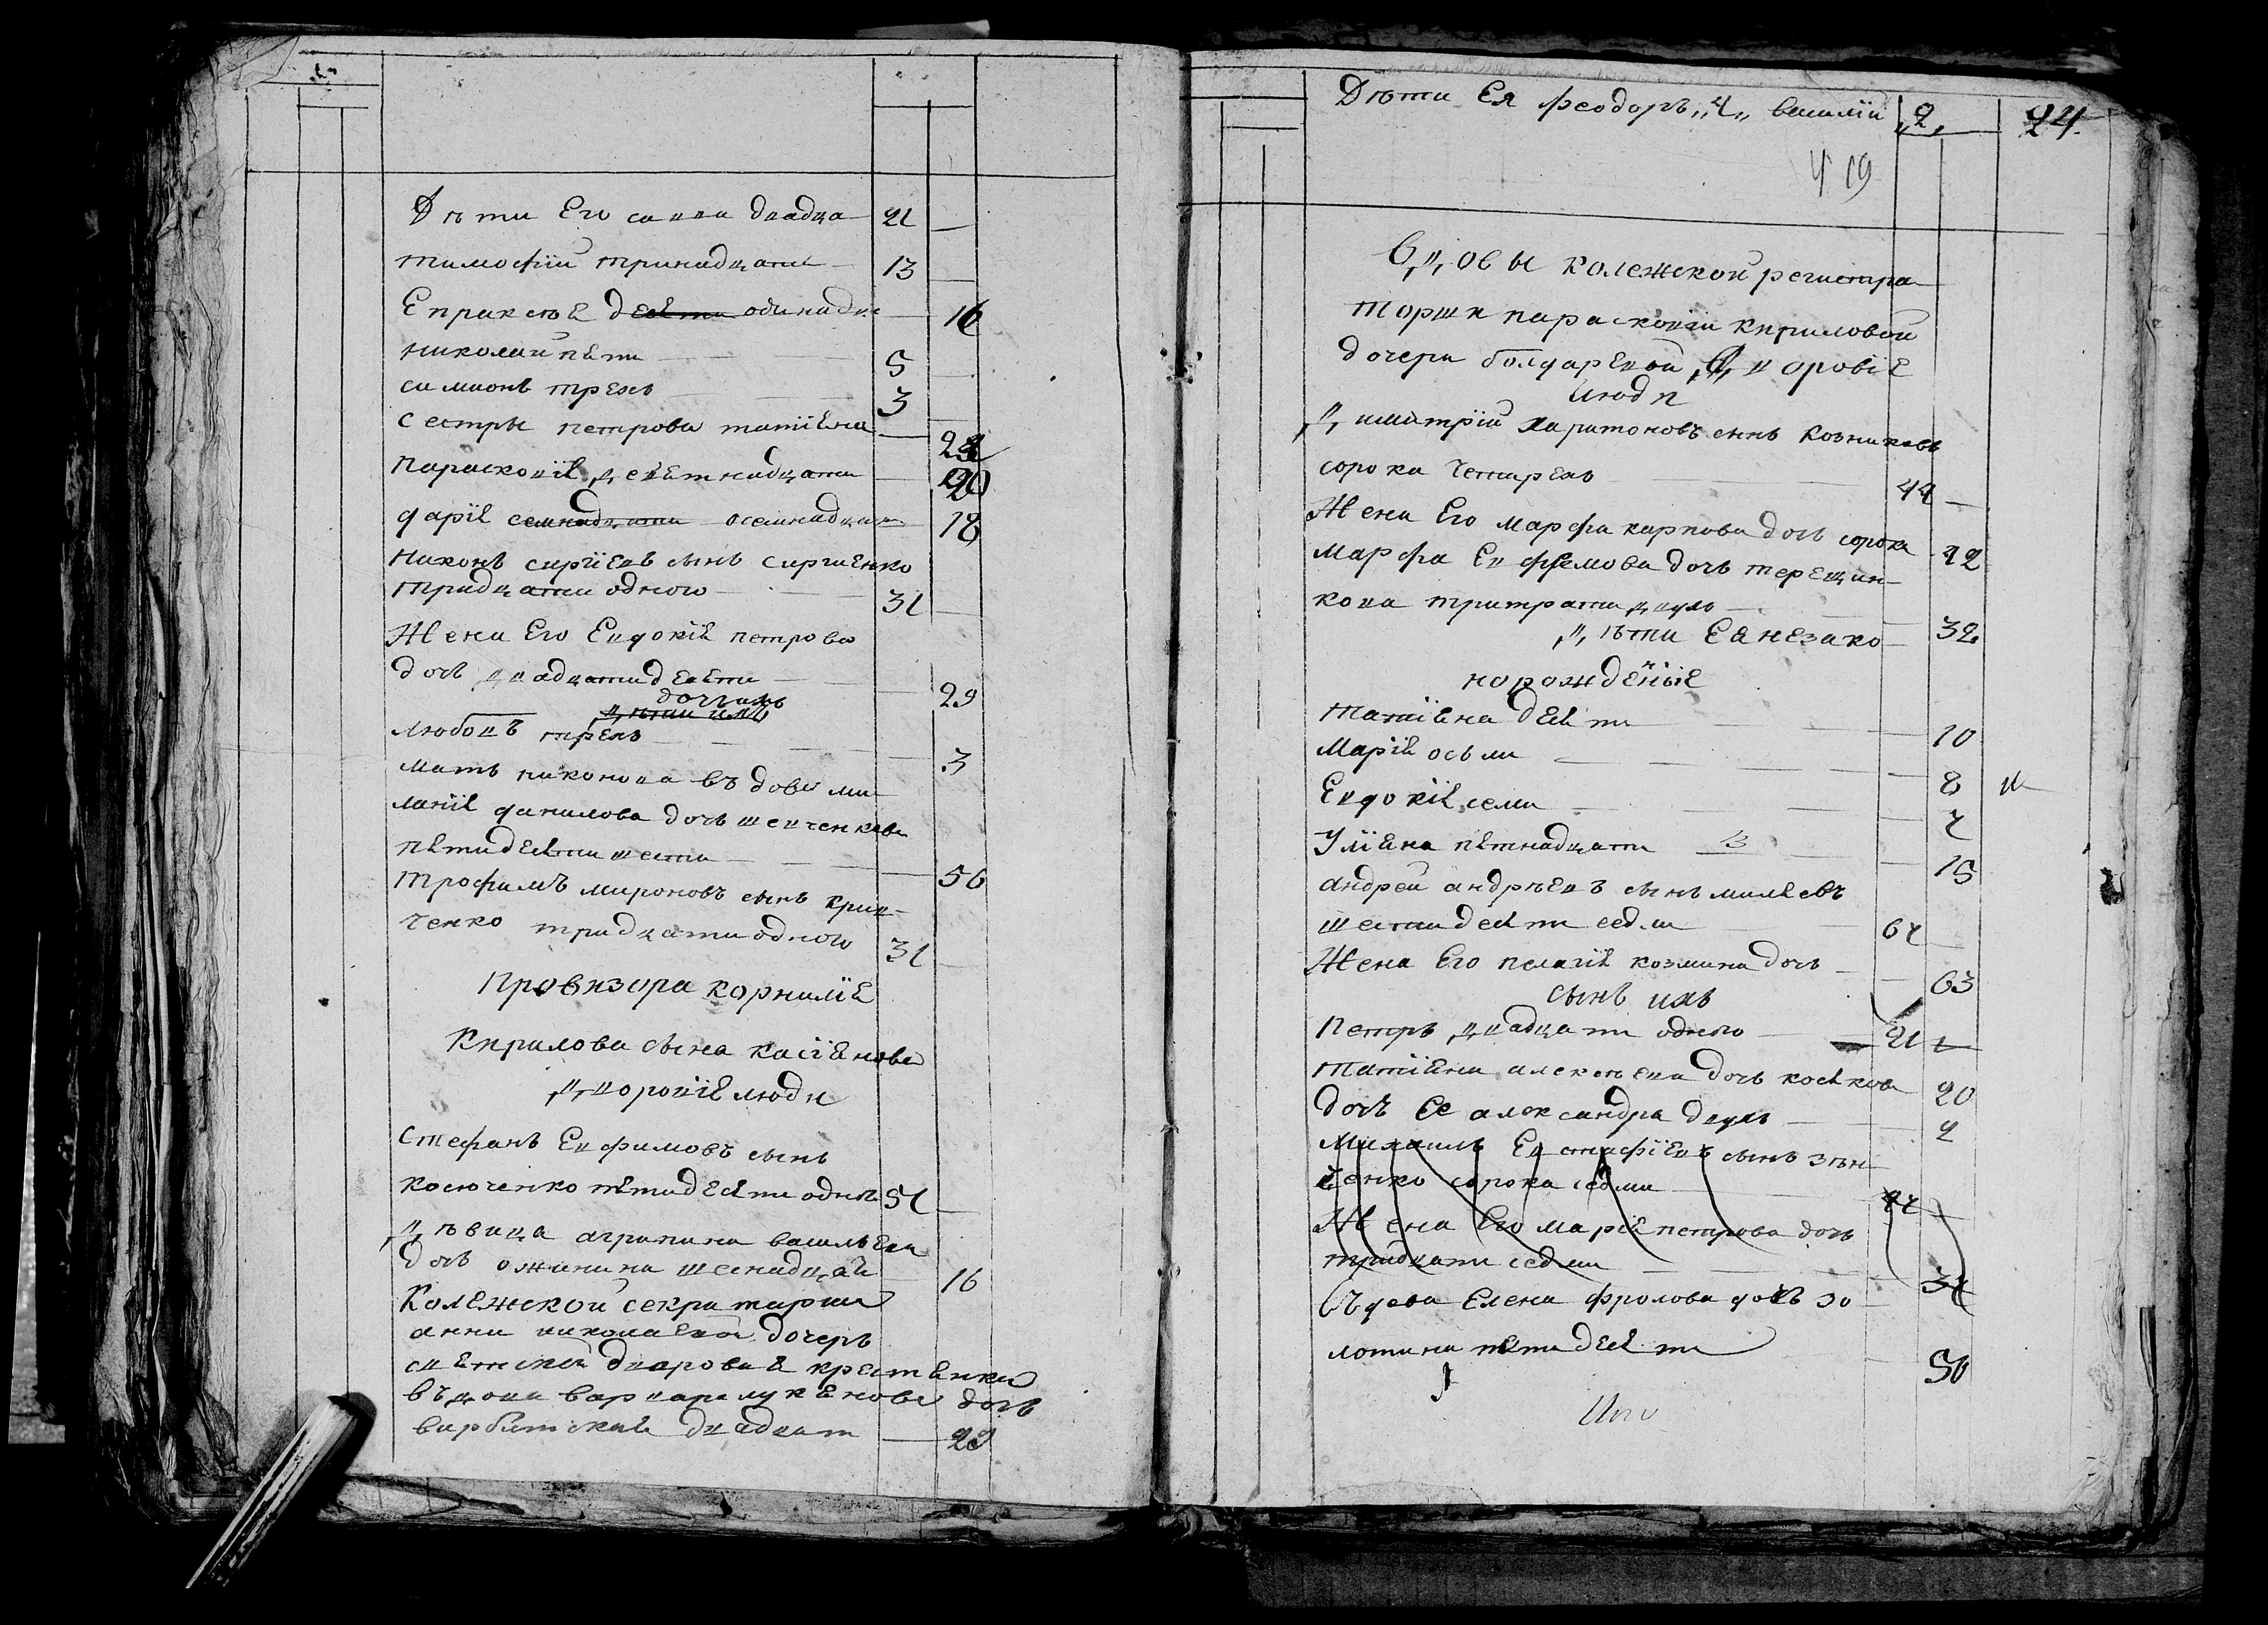 Дѣти Его савва двадца 21
тимофїй тринадцати 13
Епраксѣя десяти одинадца 16
николай пяти 5
симионъ трехъ 3
сестры петрова татїяна 23
параскопїя девятнадцати 20
дарїя семнадцати осемнадцати 18
никонъ сиргїевъ сынъ сиргиенко
тридцати одного 31
Жена Его Евдокїя петрова
дочь двадцатидевяти 29
дочь ихъ
дѣти ихъ
любовъ трехъ 3
мать никонова въдова ми
ланїя данилова дочь шевченкова
пятидесяти шести 56
трофимъ мироновъ сынъ крив
ченко тридцати одного 31
Провизора корнилїя
Кирилова сына касїянова
дворовїе люди
стефанъ Евфимовъ сынъ
косюченко пятидесяти одного 51
дѣвица агрипина василѣва
дочь ожинина шеснадцати 16
Колежской секритарши
анни николаевой дочеръ
святской дворовая крестянка
въдова варвара лукянова дочь
варбитская двадцат 29
Дѣти Ея феодоръ „4„ василїй „2„ 24.
419
Вдовы колежской регистра
торши параскопїи кириловой
дочери болдаревой дворовїе
люди
димитрїй харитоновъ сынъ Козниковъ
сорока четирехъ 44
Жена Его марфа карпова дочь сорока 42
марфа Евфемова дочь терещин
кова тритцати двухъ 32
дѣти Ея незако
норожденыіе
татїяна десяти 10
Марїя осьми 8
Евдокїя семи 7
Улїяна пятнадцати 15
андрей андрѣевъ сынъ милясвъ
шестидесяти седми 67
Жена Его пелагїя козмина дочь 63
сынъ ихъ
Петръ двадцати одного 21
татїяна алексѣева дочь косякова 20
дочь Ее александра двухъ 2
Михаилъ Евстафїевъ сынъ зѣн
ченко сорока седми 47
Жена Его марїя петрова дочь
тридцати седми 37
Въдова Елена фролова дочь зо
лотина пятидесяти 50
Ито